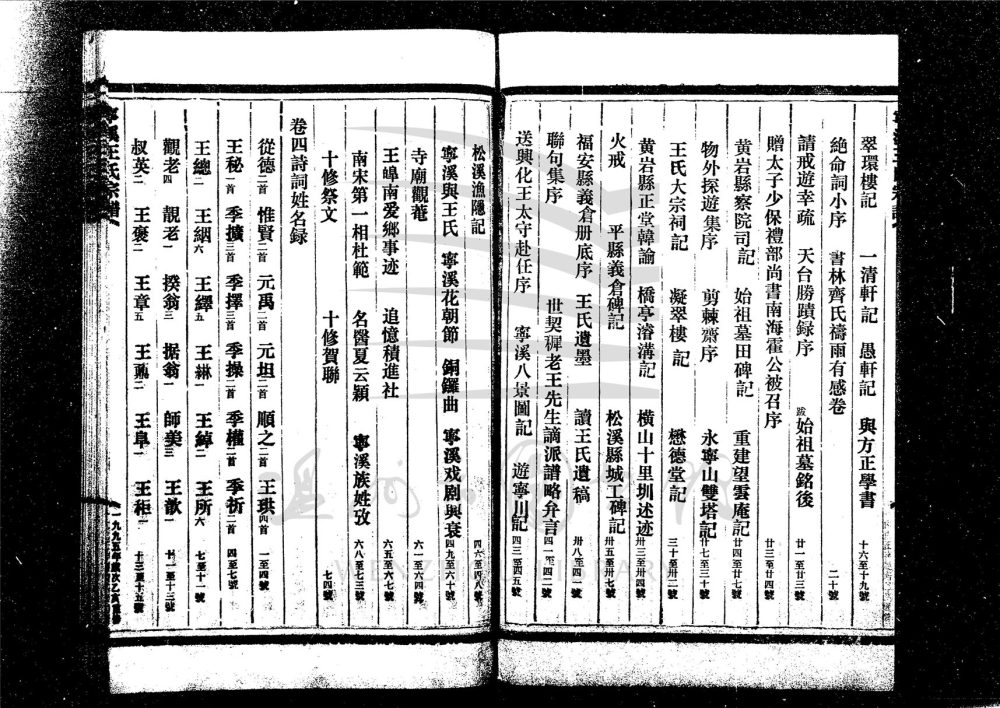 翠環樓記 一清軒記 愚軒記 與方正學書 十六至十九號
絶命詞小序 書林齊氏禱雨有感卷 二十號
請戒遊幸疏 天台勝蹟録序 跋始祖墓銘後 廿一至廿三號
贈太子少保禮部尚書南海霍公被召序 廿三至廿四號
黄岩縣察院司記 始祖墓田碑記 重建望雲庵記 廿四至廿七號
物外探遊集序 剪棘齋序 永寧山雙塔記 廿七至三十號
王氏大宗祠記 凝翠樓記 懋德堂記 三十至卅二號
黄岩縣正堂韓諭 橋亭濬溝記 横山十里圳述迹 卅三至卅四號
火戒 平縣義倉碑記 松溪縣城工碑記 卅五至卅七號
福安縣義倉册底序 王氏遺墨 讀王氏遺稿 卅八至四一號
聯句集序 世契穉老王先生謫派譜略弁言 四一至四二號
送興化王太守赴任序 寧溪八景圖記 遊寧川記 四三至四五號
松溪漁隱記 四六至四八號
寧溪與王氏 寧溪花朝節 銅鑼曲 寧溪戏剧興衰 四九至六十號
寺廟觀菴 六一至六四號
王皞南爱鄉事迹 追憶積進社 六五至六七號
南宋第一相杜範 名醫夏云穎 寧溪族姓攷 六八至七三號
十修祭文 十修賀聯 七四號
卷四詩詞姓名録
從德二首 惟賢二首 元禹二首 元坦二首 順之二首 王珙四首 一至四號
王秘一首 季擴三首 季擇三首 季操二首 季權二首 季祈二首 四至七號
王總二 王絪六 王繹五 王綝一 王綽二 王所六 七至十一號
觀老四 靚老一 揆翁三 据翁一 師美三 王歆一 十一至十三號
叔英二 王褒二 王章五 王 二 王阜一 王秬一 十三至十五號
寧溪王氏宗譜
一九九五年歲次乙亥重修
WENZHOU LIBRARY